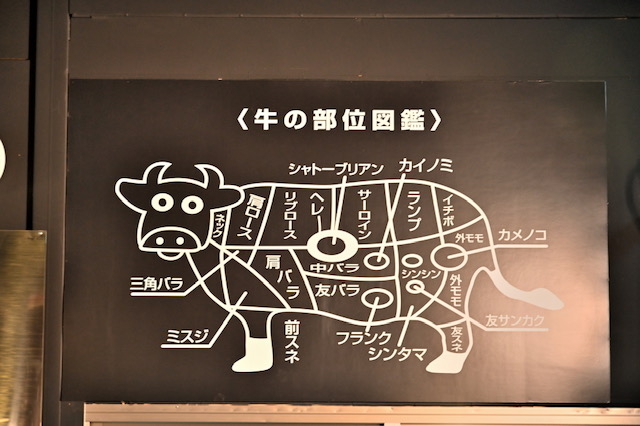 〈牛の部位図鑑〉
シャトーブリアン
カイノミ
ネック
肩ロース
リブロース
ヘレー
サーロイン
ランプ
イチボ
外モモ
カメノコ
三角バラ
肩バラ
中バラ
友バラ
シンシン
外モモ
ミスジ
前スネ
フランク
シンタマ
友スネ
友サンカク